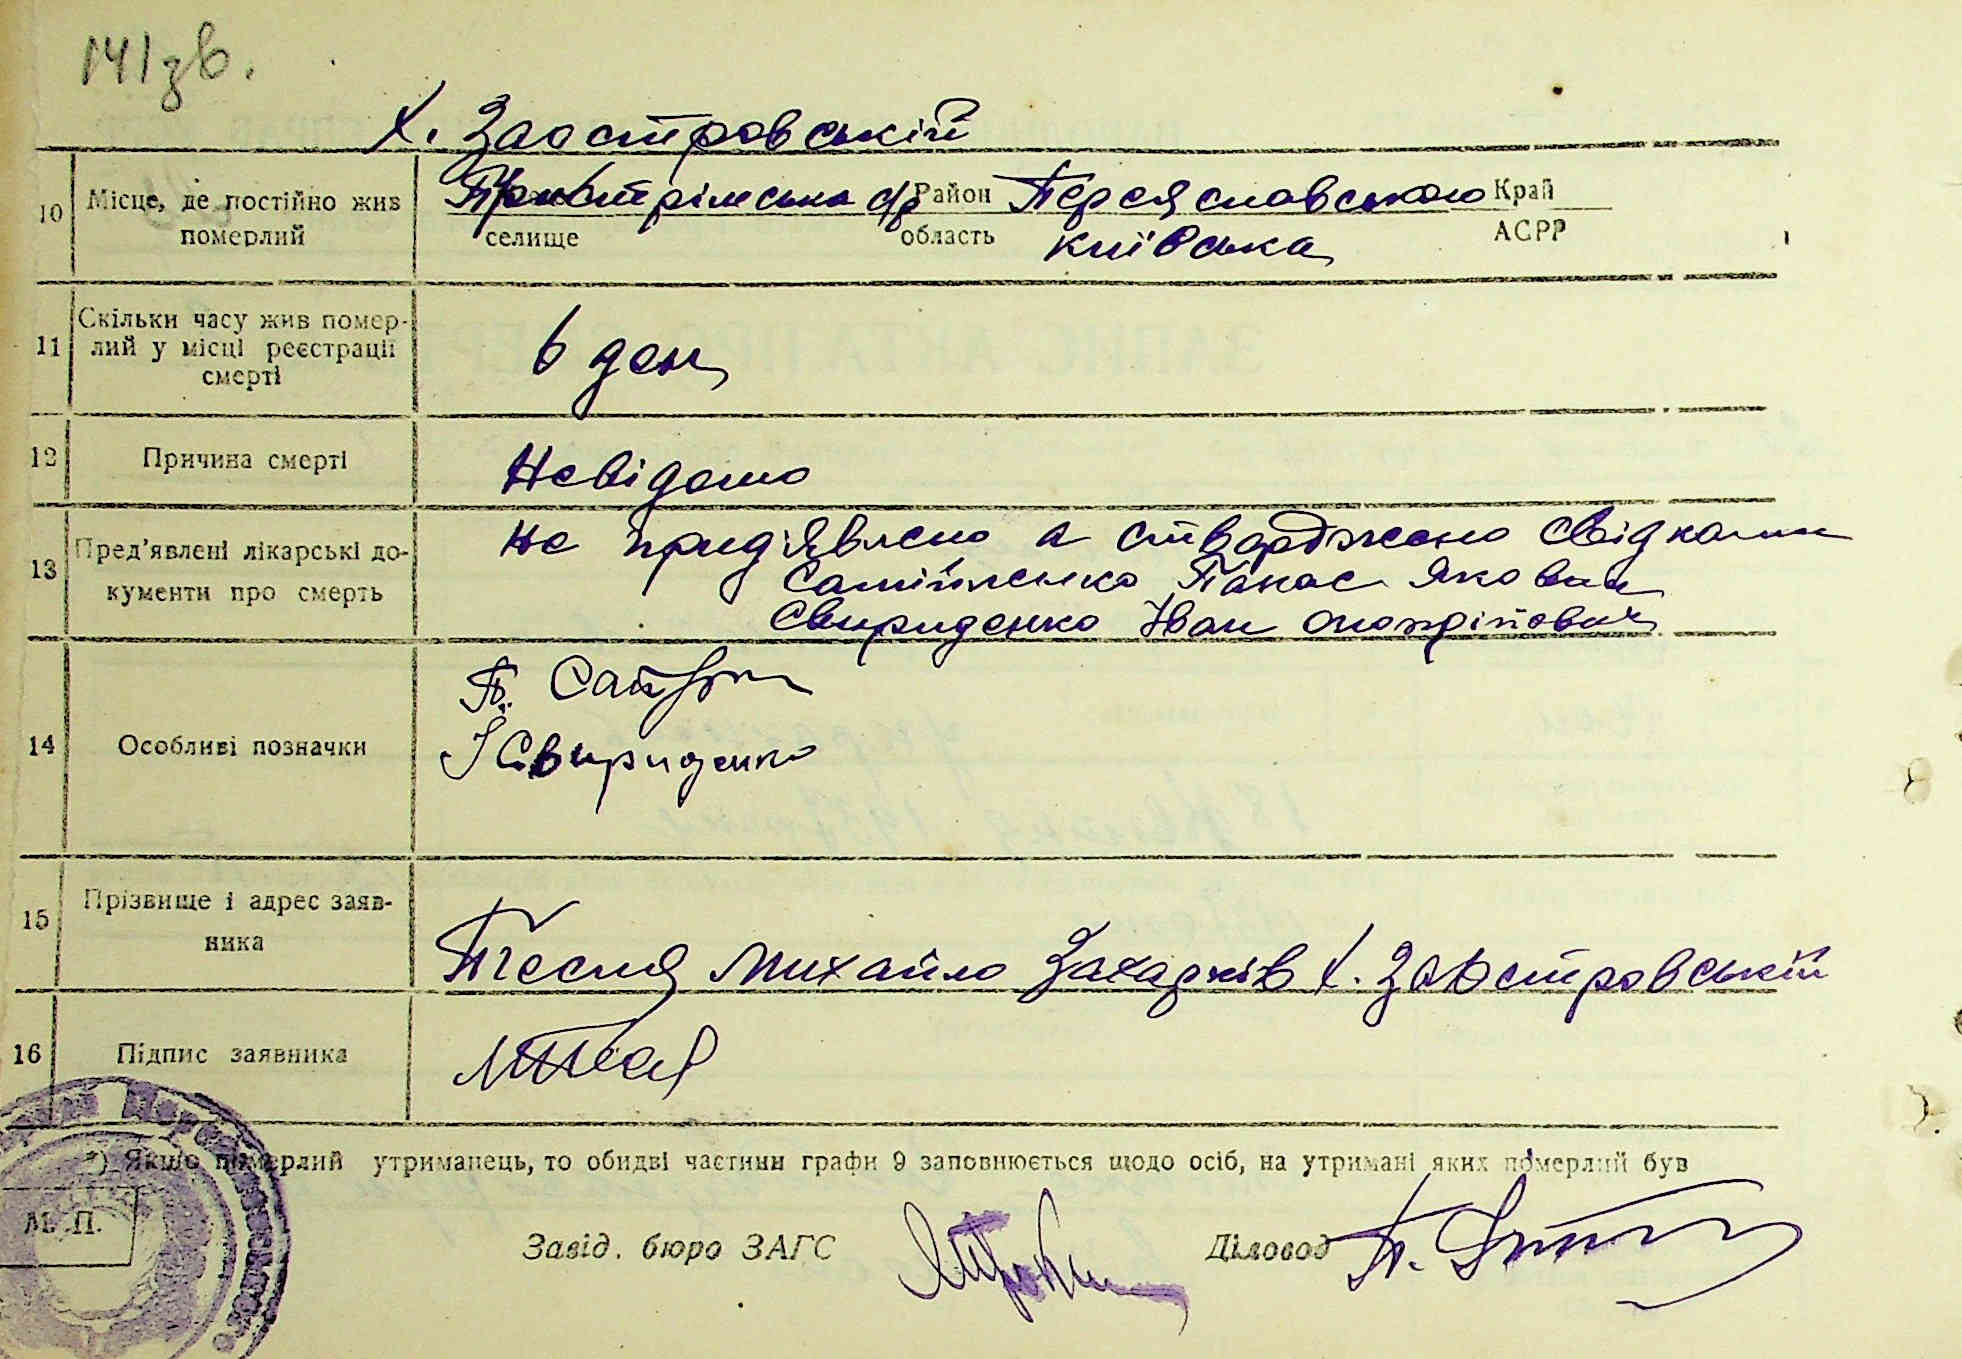 141 зв.
х. Заостровський
10 Місце, де постійно жив померлий
Пристрімська с/р Район Переяславського Край
селище область Київська АСРР
11 Скільки часу жив помер-
лий у місці реєстрації
смерті
6 ден
12 Причина смерті
Невідомо
13 Пред'явлені лікарські до-
кументи про смерть
Не придявлено а стверджено свідками
Самійленко Панас Якович
Свириденко Іван
14 Особливі позначки
П.
І Свириденко
15 Прізвище і адрес заяв-
ника
Тесля Михайло Захарків х. Заостровський
16 Підпис заявника
*) Якщо померлий утриманець, то обидві частини графи 9 заповнюється щодо осіб, на утримані яких померлий був
М. П.
Завід. бюро ЗАГС Діловод